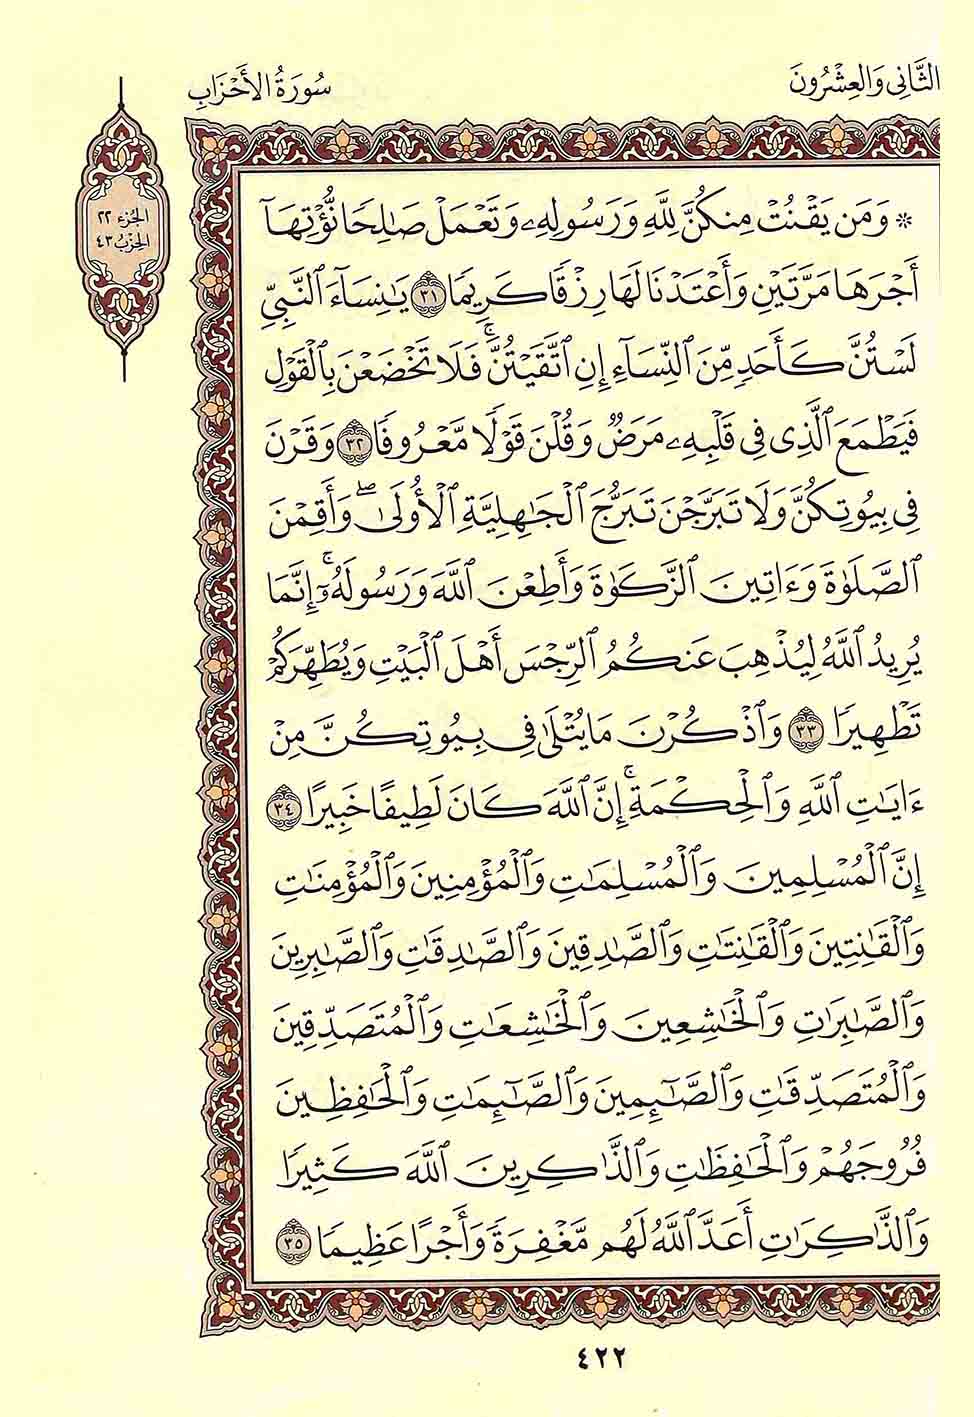 الثَّانِي وَالعِشْرُونَ
سُورَةُ الأَحْزَابِ
الجُزْء ٢٢
الحِزْب ٤٣
* وَمَن يَقْنُتْ مِنكُنَّ لِلَّهِ وَرَسُولِهِۦ وَتَعْمَلْ صَٰلِحًا نُّؤْتِهَآ
أَجْرَهَا مَرَّتَيْنِ وَأَعْتَدْنَا لَهَا رِزْقًا كَرِيمًا ٣١ يَٰنِسَآءَ ٱلنَّبِيِّ
لَسْتُنَّ كَأَحَدٍ مِّنَ ٱلنِّسَآءِ إِنِ ٱتَّقَيْتُنَّۚ فَلَا تَخْضَعْنَ بِٱلْقَوْلِ
فَيَطْمَعَ ٱلَّذِى فِى قَلْبِهِۦ مَرَضٌ وَقُلْنَ قَوْلًا مَّعْرُوفًا ٣٢ وَقَرْنَ
فِى بِيُوتِكُنَّ وَلَا تَبَرَّجْنَ تَبَرُّجَ ٱلْجَٰهِلِيَّةِ ٱلْأُولَىٰۖ وَأَقِمْنَ
ٱلصَّلَوٰةَ وَءَاتِينَ ٱلزَّكَوٰةَ وَأَطِعْنَ ٱللَّهَ وَرَسُولَهُۥٓۚ إِنَّمَا
يُرِيدُ ٱللَّهُ لِيُذْهِبَ عَنكُمُ ٱلرِّجْسَ أَهْلَ ٱلْبَيْتِ وَيُطَهِّرَكُمْ
تَطْهِيرًا ٣٣ وَٱذْكُرْنَ مَا يُتْلَىٰ فِى بِيُوتِكُنَّ مِنْ
ءَايَٰتِ ٱللَّهِ وَٱلْحِكْمَةِۚ إِنَّ ٱللَّهَ كَانَ لَطِيفًا خَبِيرًا ٣٤
إِنَّ ٱلْمُسْلِمِينَ وَٱلْمُسْلِمَٰتِ وَٱلْمُؤْمِنِينَ وَٱلْمُؤْمِنَٰتِ
وَٱلْقَٰنِتِينَ وَٱلْقَٰنِتَٰتِ وَٱلصَّٰدِقِينَ وَٱلصَّٰدِقَٰتِ وَٱلصَّٰبِرِينَ
وَٱلصَّٰبِرَٰتِ وَٱلْخَٰشِعِينَ وَٱلْخَٰشِعَٰتِ وَٱلْمُتَصَدِّقِينَ
وَٱلْمُتَصَدِّقَٰتِ وَٱلصَّٰٓئِمِينَ وَٱلصَّٰٓئِمَٰتِ وَٱلْحَٰفِظِينَ
فُرُوجَهُمْ وَٱلْحَٰفِظَٰتِ وَٱلذَّٰكِرِينَ ٱللَّهَ كَثِيرًا
وَٱلذَّٰكِرَٰتِ أَعَدَّ ٱللَّهُ لَهُم مَّغْفِرَةً وَأَجْرًا عَظِيمًا ٣٥
٤٢٢